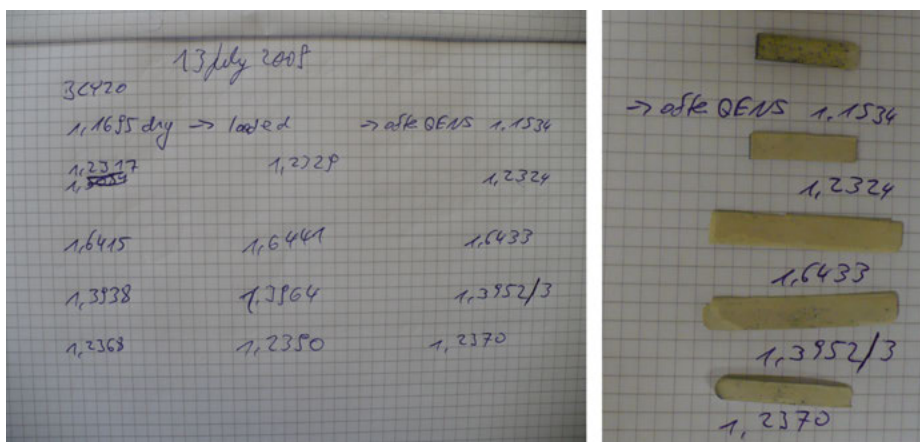 13 July 2009
BCY20
1,1695 dry → loaded → afte QENS 1,1534
1,2317 1,2329 1,2324
1,6415 1,6441 1,6433
1,3938 1,3964 1,3952/3
1,2368 1,2390 1,2370
→ afte QENS 1,1534
1,2324
1,6433
1,3952/3
1,2370